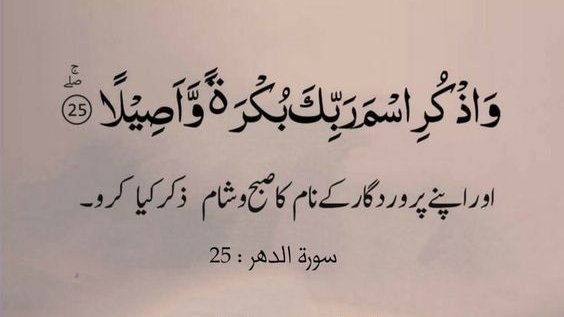 وَاذْكُرِ اسْمَ رَبِّكَ بُكْرَةً وَّاَصِيْلًا 25 صلے ج
اور اپنے پروردگار کے نام کا صبح و شام ذکر کیا کرو۔
سورة الدهر : 25